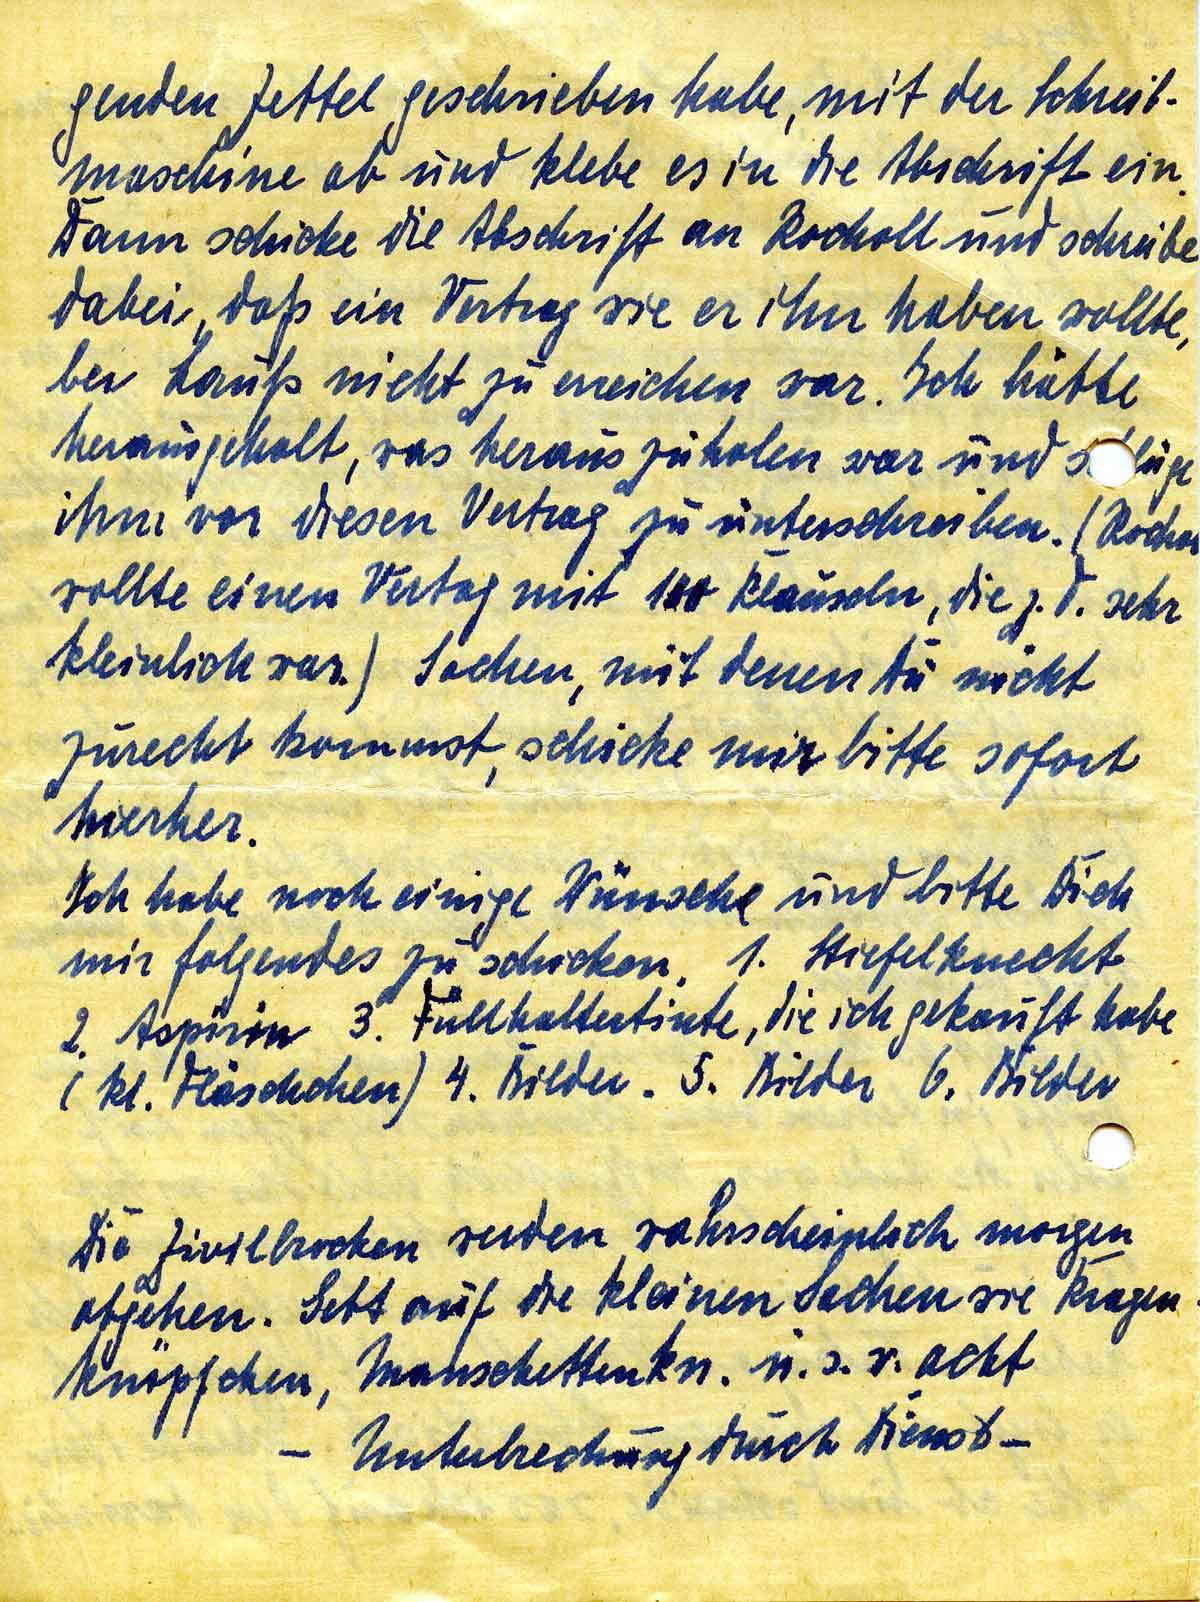 genden Zettel geschrieben habe, mit der Schreib-
maschine ab und klebe es in die Abschrift ein.
Dann schicke die Abschrift an Rocholl und schreibe
dabei, daß ein Vertrag wie er ihn haben wollte,
bei Lauß nicht zu erreichen war. Ich hätte
herausgeholt, was herauszuholen war und schlüge
ihm vor diesen Vertrag zu unterschreiben. (Rochol
wollte einen Vertag mit 100 Klauseln, die z. T. sehr
kleinlich war.) Sachen, mit denen Du nicht
zurecht kommst, schicke mir bitte sofort
hierher.
Ich habe noch einige Wünsche und bitte Dich
mir folgendes zu schicken. 1. Stiefelknecht
2. Aspirin 3. Füllhaltertinte, die ich gekauft habe
(kl. Fläschchen) 4. Bilder. 5. Bilder 6. Bilder
Die Zivilbrocken werden wahrscheinlich morgen
abgehen. Gebt auf die kleinen Sachen wie Kragen-
knöpfchen, Manschettenkn. u. s. w. acht
– Unterbrechung durch Dienst –